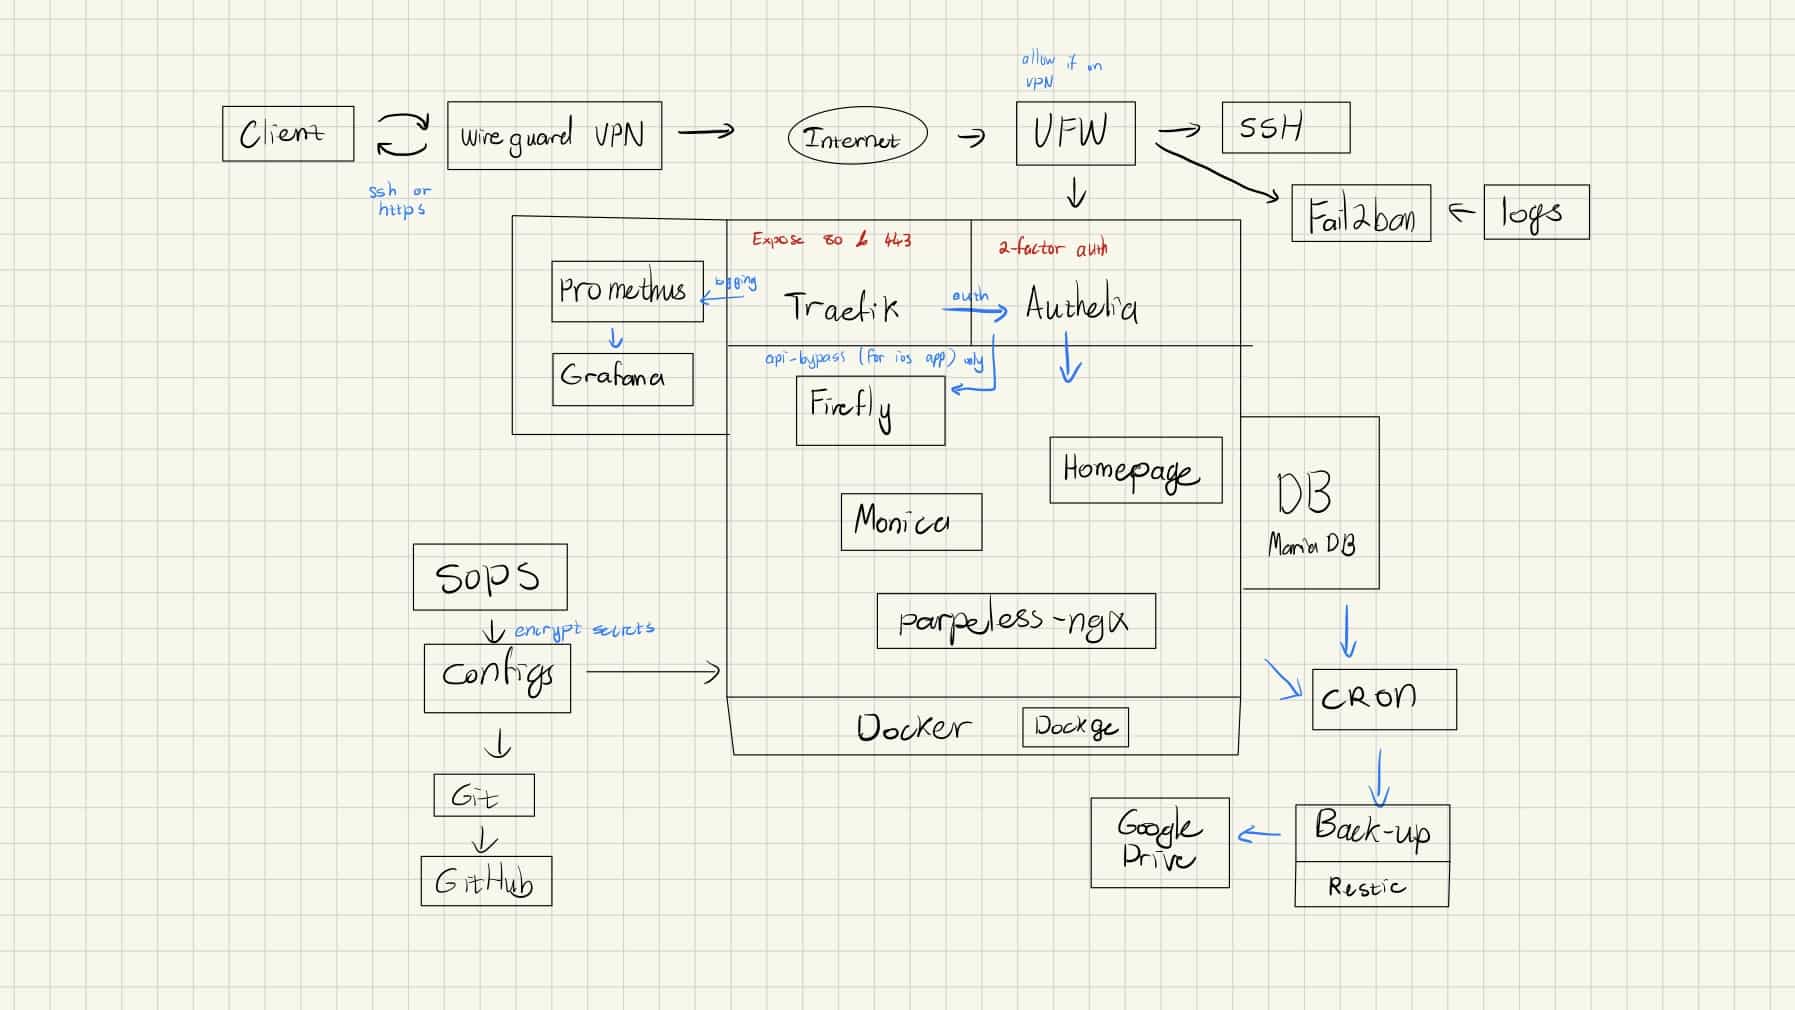 allow if on
VPN
Client
Wireguard VPN
Internet
UFW
SSH
ssh or
https
Fail2ban
logs
Expose 80 & 443
2-factor auth
Promethus
logging
Traefik
auth
Authelia
Grafana
api-bypass (for ios app) only
Firefly
Homepage
DB
Maria DB
Monica
Sops
encrypt secrets
parpeless-ngx
configs
CRON
Docker
Dockge
Git
Google
Drive
Back-up
Restic
GitHub